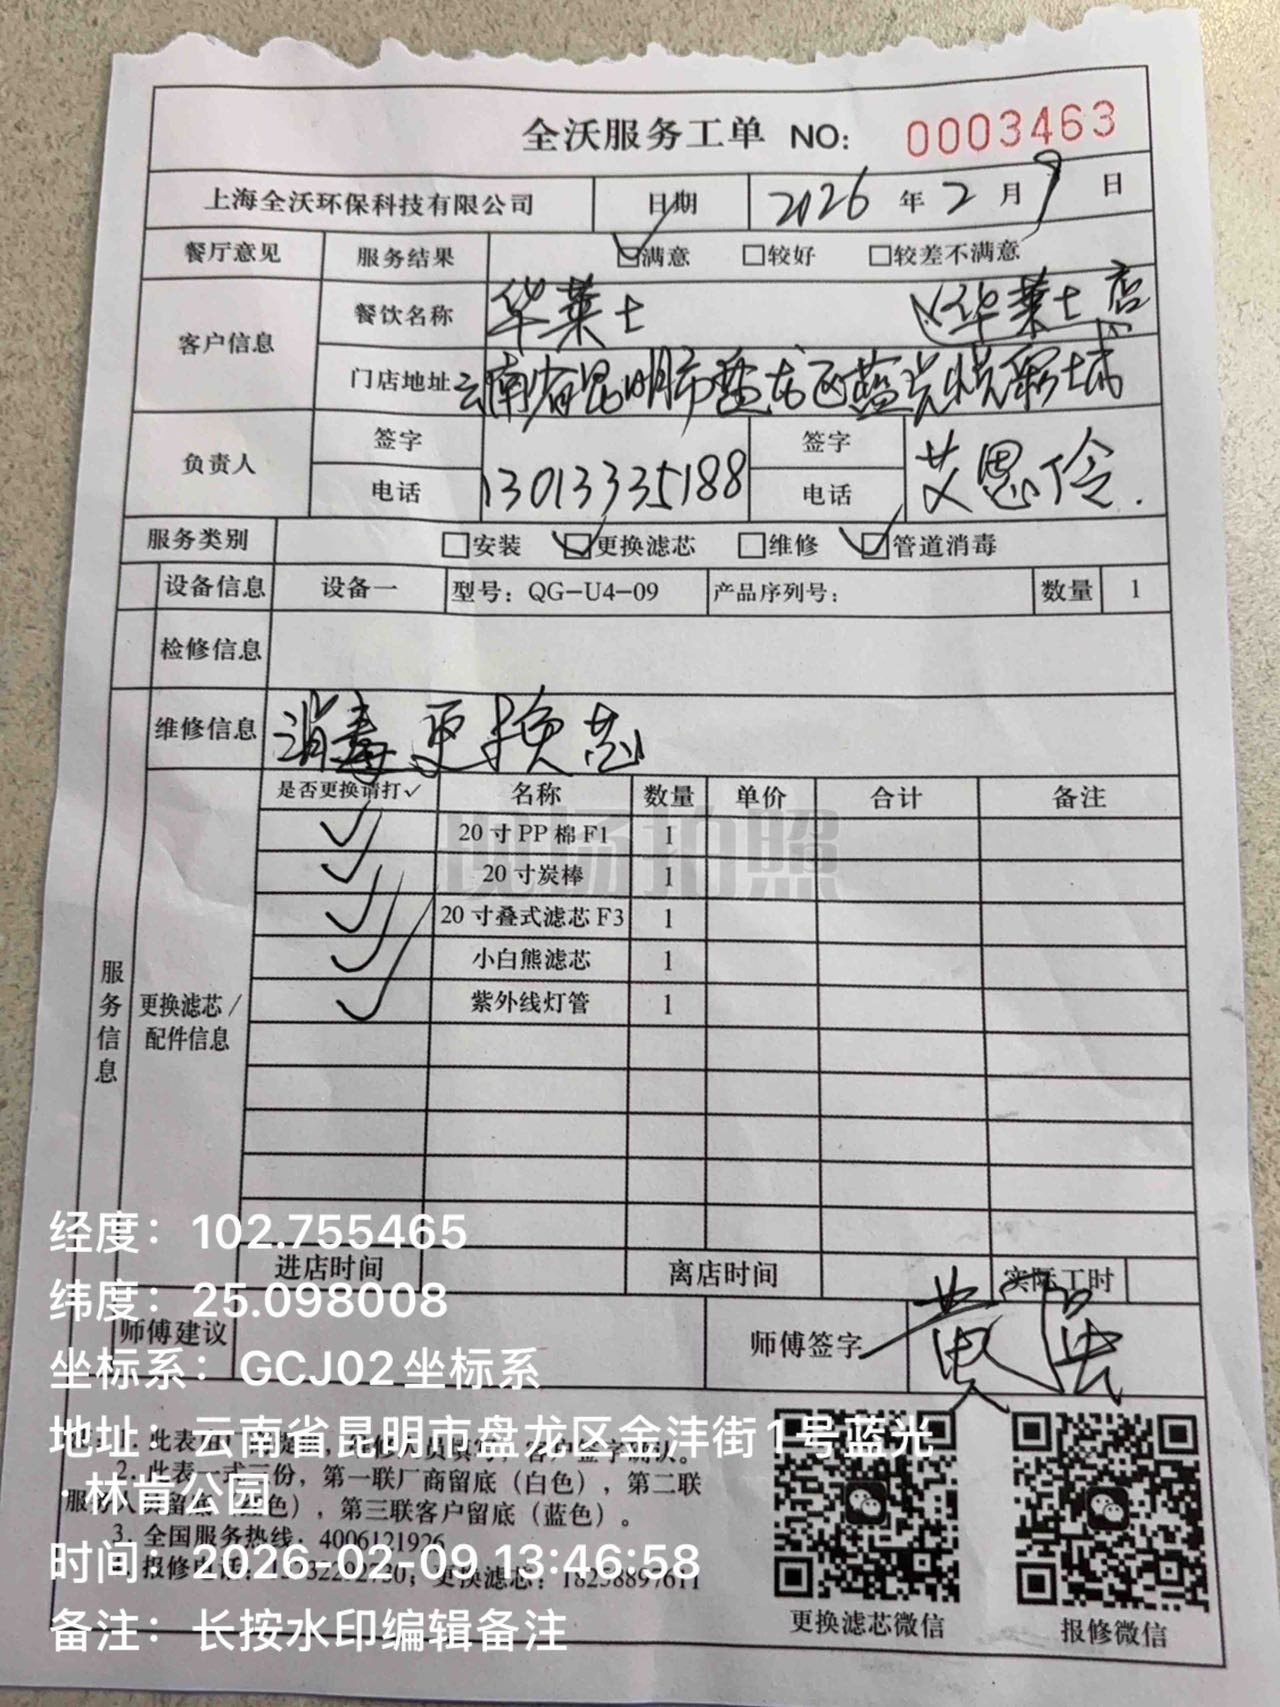 全沃服务工单 NO: 0003463
上海全沃环保科技有限公司 日期 2026 年 2 月 9 日
餐厅意见 服务结果 ☑满意 □较好 □较差不满意
客户信息 餐饮名称 华莱士 华莱士店
门店地址 云南省昆明市盘龙区蓝光悦彩城
负责人 签字 签字 艾恩伶.
电话 13013335188 电话
服务类别 □安装 ☑更换滤芯 □维修 ☑管道消毒
设备信息 设备一 型号: QG-U4-09 产品序列号: 数量 1
检修信息
维修信息 消毒更换芯
是否更换请打✓ 名称 数量 单价 合计 备注
✓ 20寸PP棉F1 1
✓ 20寸炭棒 1
✓ 20寸叠式滤芯F3 1
✓ 小白熊滤芯 1
✓ 紫外线灯管 1
服务信息
更换滤芯/
配件信息
现场拍照
进店时间 离店时间 实际工时
师傅建议 师傅签字 黄
客户签字确认。
2. 此表一式三份，第一联厂商留底（白色），第二联
服务人员留底（红色），第三联客户留底（蓝色）。
3. 全国服务热线: 4006121926
报修电话: 更换滤芯: 18238897611
更换滤芯微信 报修微信
经度: 102.755465
纬度: 25.098008
坐标系: GCJ02坐标系
地址: 云南省昆明市盘龙区金沣街1号蓝光
·林肯公园
时间: 2026-02-09 13:46:58
备注: 长按水印编辑备注